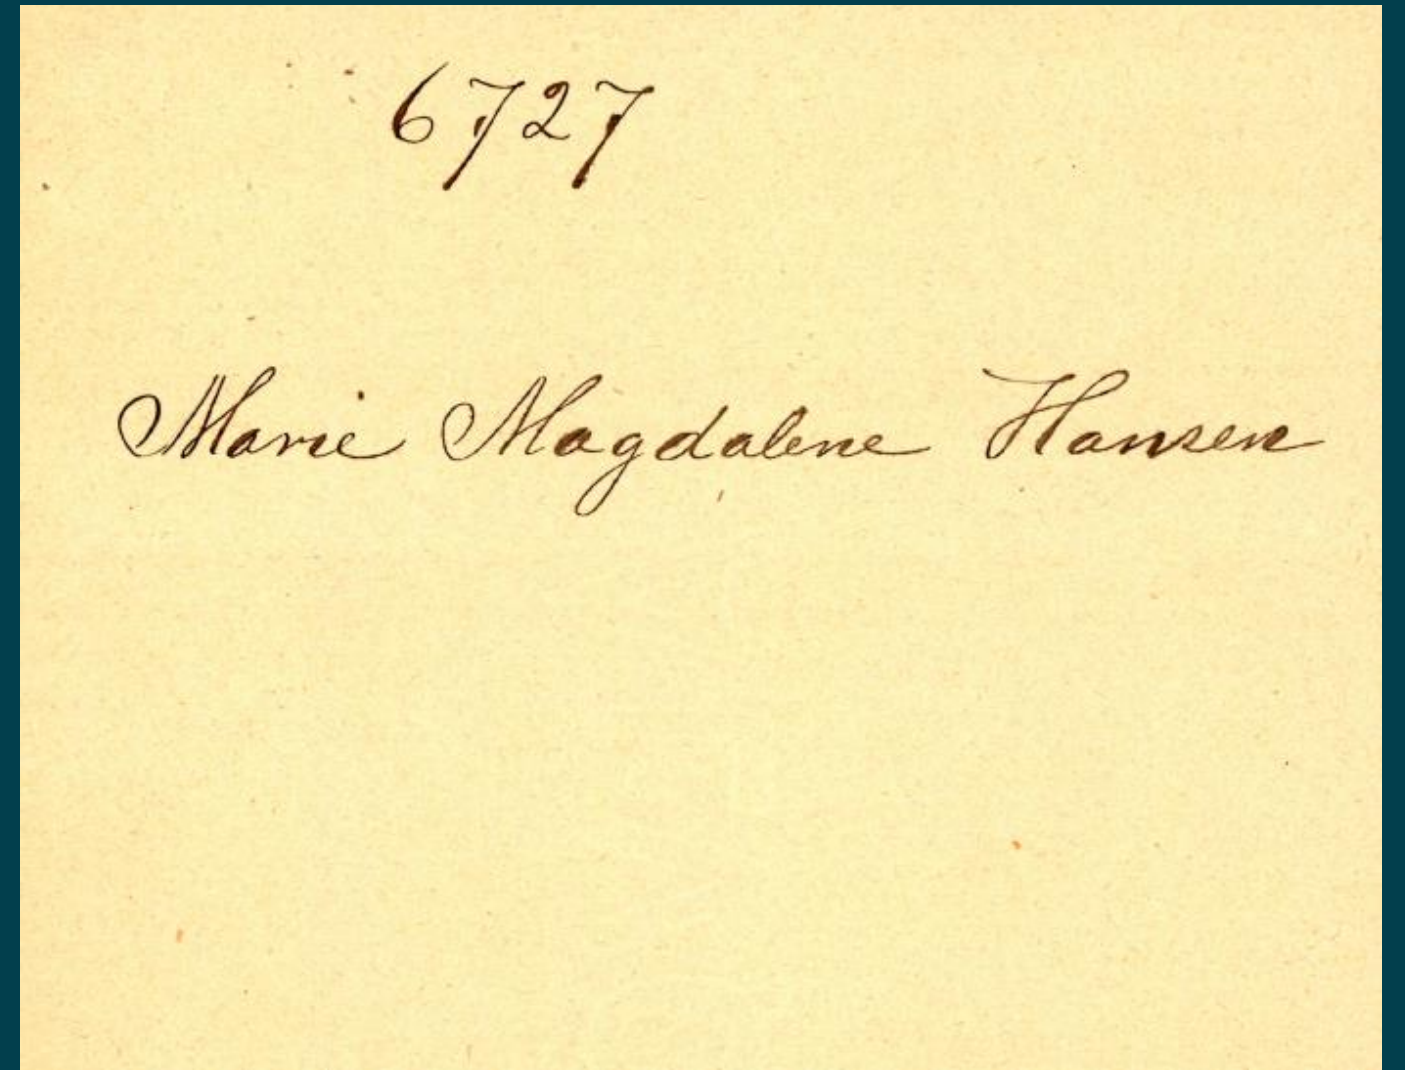 6727
Marie Magdalene Hansen